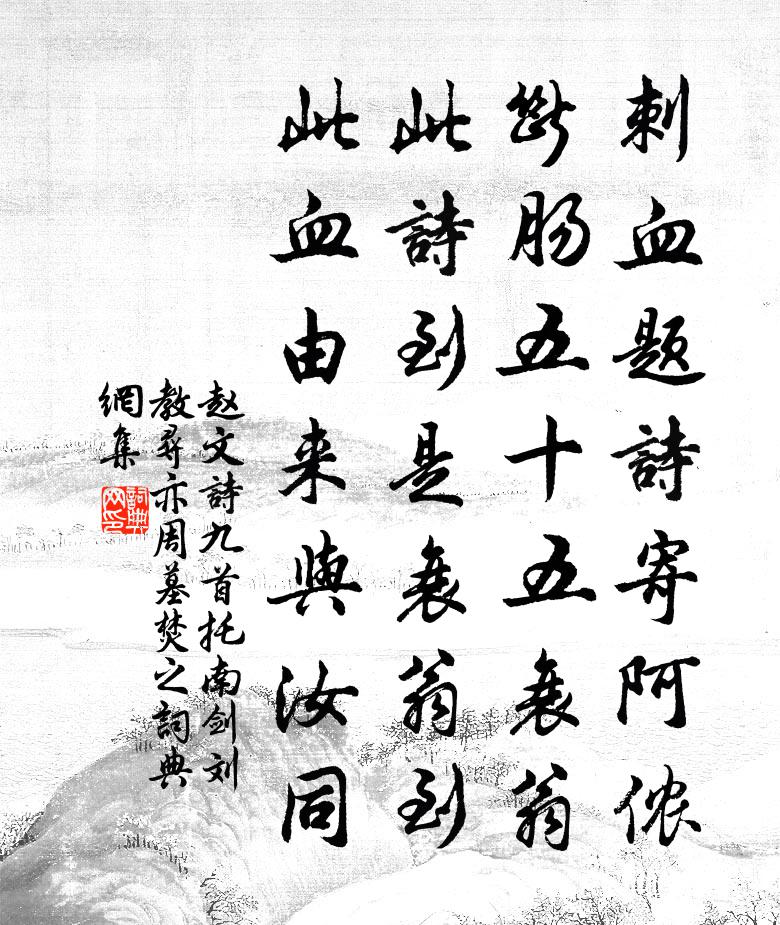 刺血题詩寄阿侬
断肠五十五衰翁
此詩到是衰翁到
此血由来與汝同
赵文詩九首托南剑刘
教尋亦周墓焚之詞典
網集
詞典網印